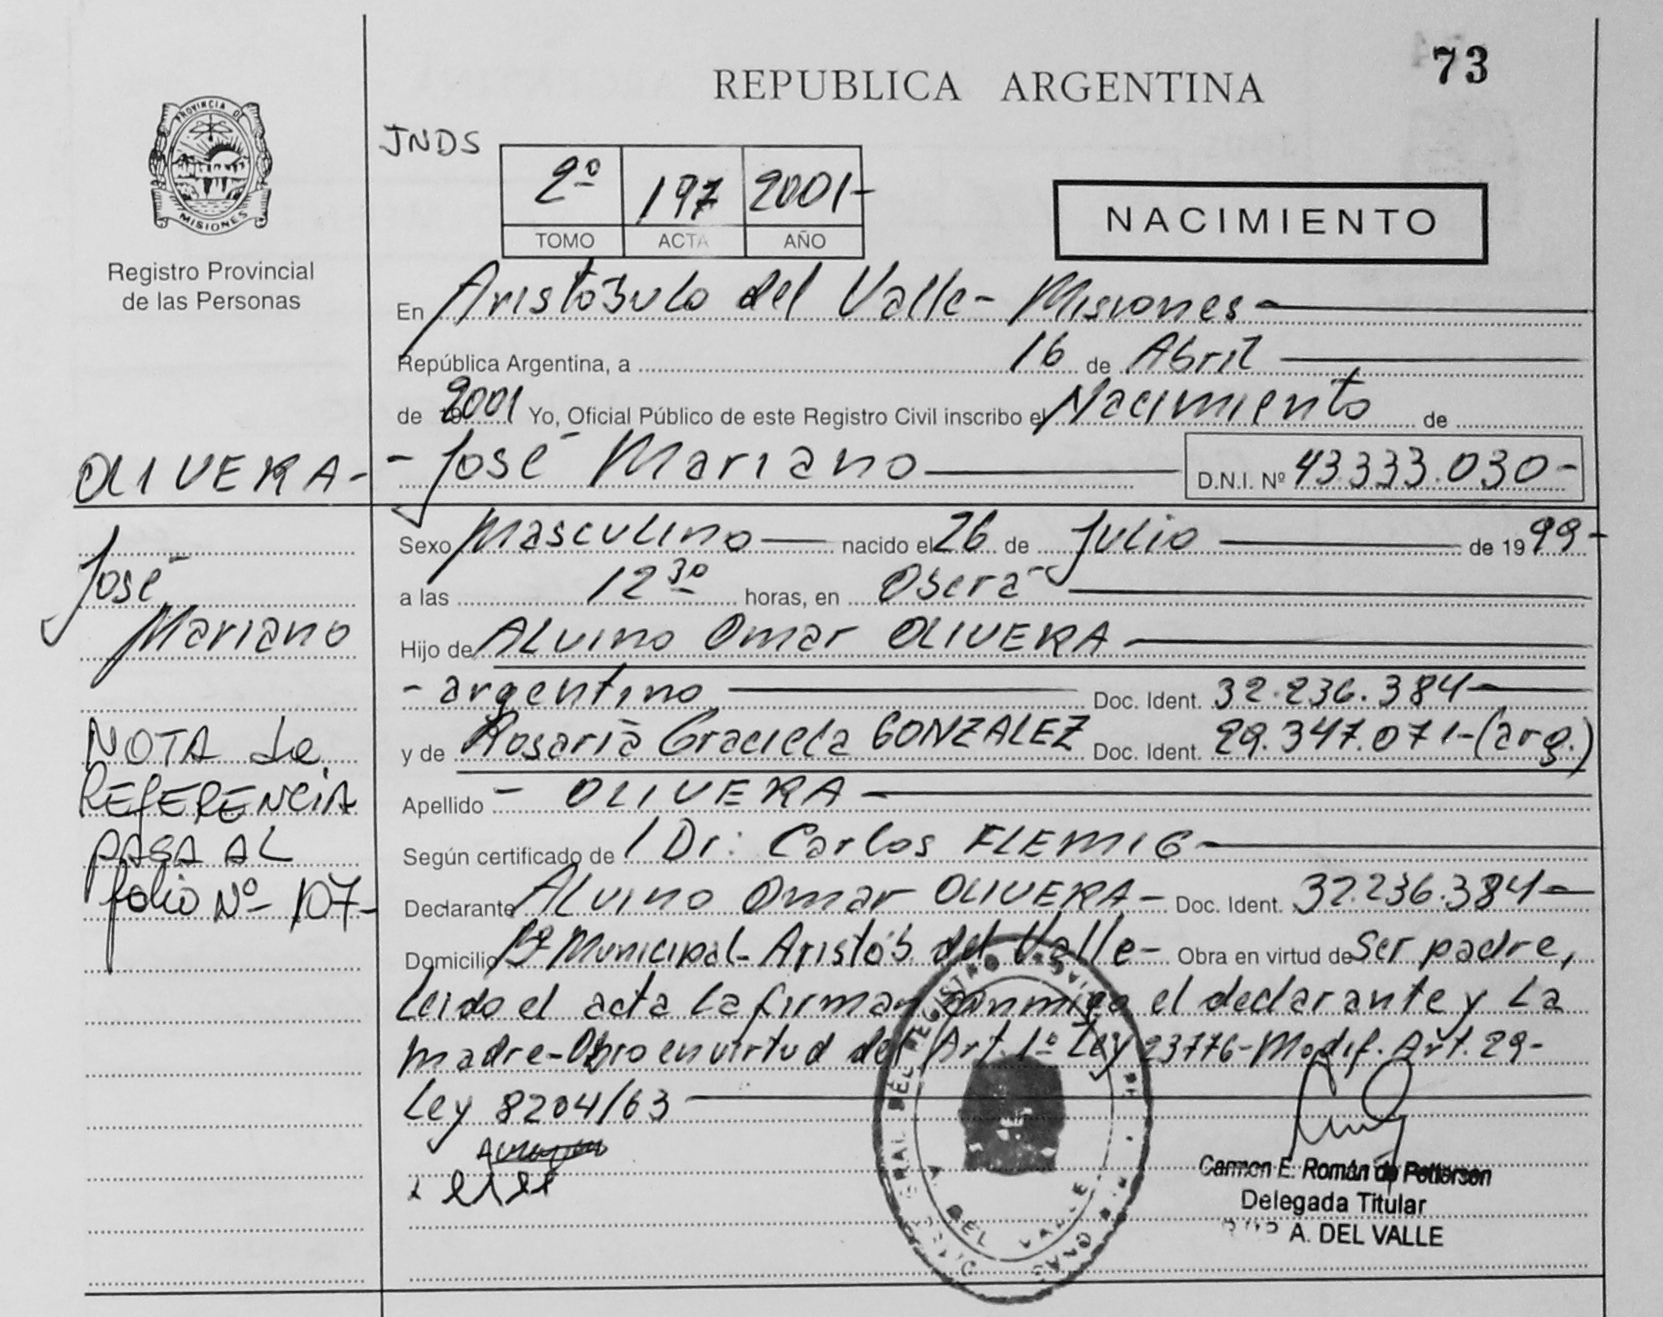 73
REPUBLICA ARGENTINA
PROVINCIA DE
MISIONES
Registro Provincial
de las Personas
JNDS
2º 197 2001-
TOMO ACTA AÑO
NACIMIENTO
En Aristóbulo del Valle- Misiones-
República Argentina, a 16 de Abril
de 2001 Yo, Oficial Público de este Registro Civil inscribo el Nacimiento de
- José Mariano D.N.I. Nº 43333.030-
OLIVERA-
José
Mariano
NOTA de
REFERENCIA
PASA AL
folio Nº 107-
Sexo Masculino nacido el 26 de Julio de 1999-
a las 12 30 horas, en Oberá
Hijo de Alvino Omar OLIVERA
- argentino Doc. Ident. 32.236.384
y de Rosaria Graciela GONZALEZ Doc. Ident. 29.347.071-(arg.)
Apellido - OLIVERA
Según certificado de Dr: Carlos FLEMIG
Declarante Alvino Omar OLIVERA- Doc. Ident. 32.236.384-
Domicilio Bº Municipal- Aristób. del Valle- Obra en virtud de Ser padre,
Leido el acta la firman conmigo el declarante y la
madre-Obro en virtud del Art. 1º Ley 23776-Modif. Art. 29-
Ley 8204/63
Carmen E. Román de Petterson
Delegada Titular
A. DEL VALLE